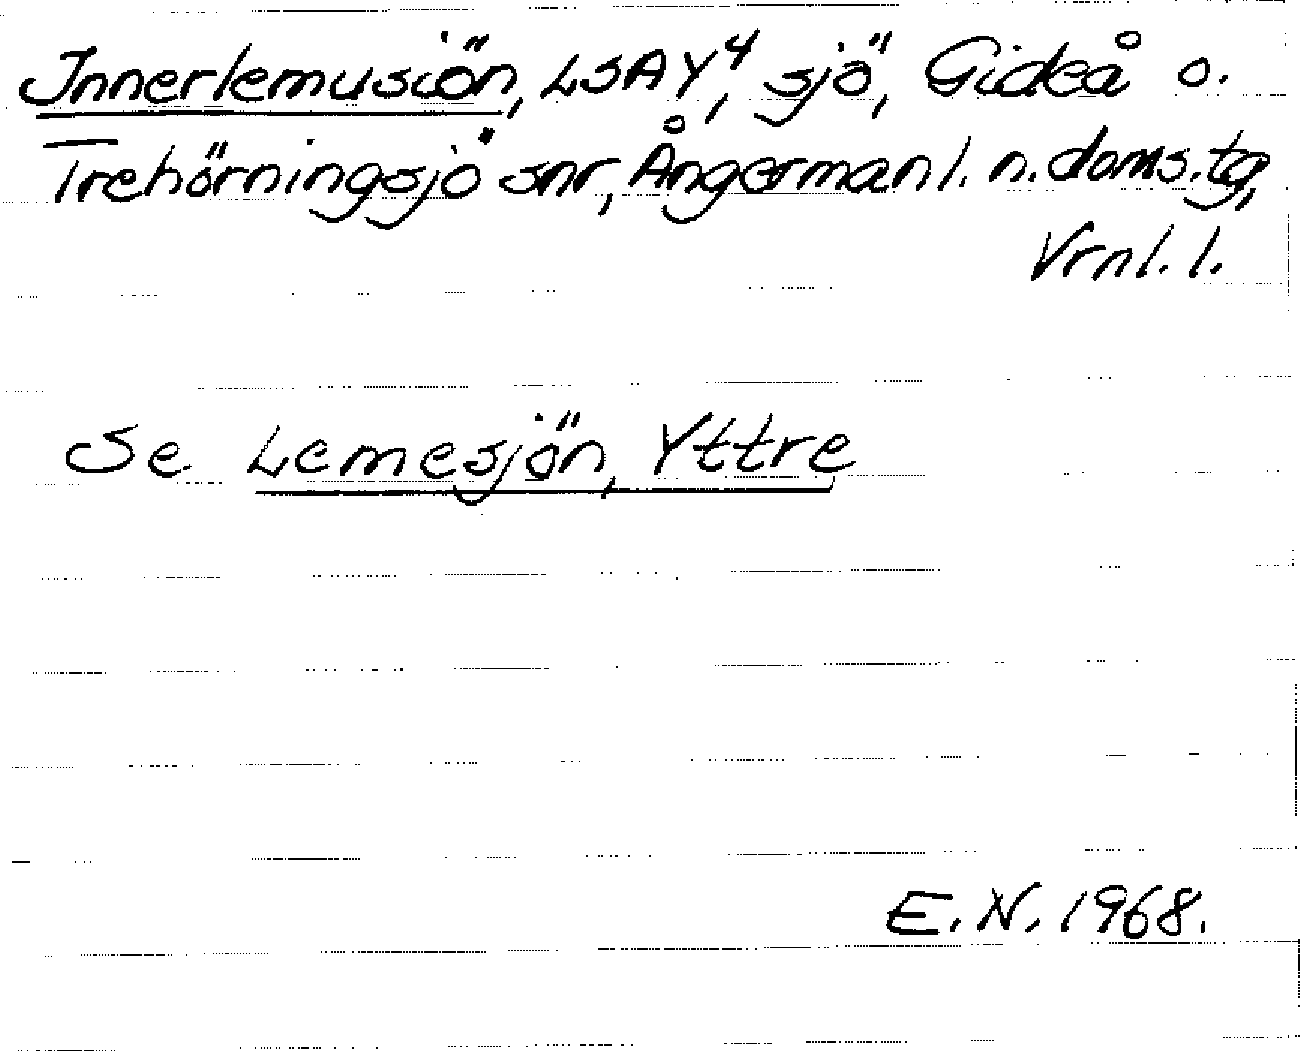 Innerlemusjön, LSA Y4, sjö, Gideå o.
Trehörningsjö snr, Ångermanl. n. doms.tg,
Vrnl. l.
Se Lemesjön, Yttre
E. N. 1968.